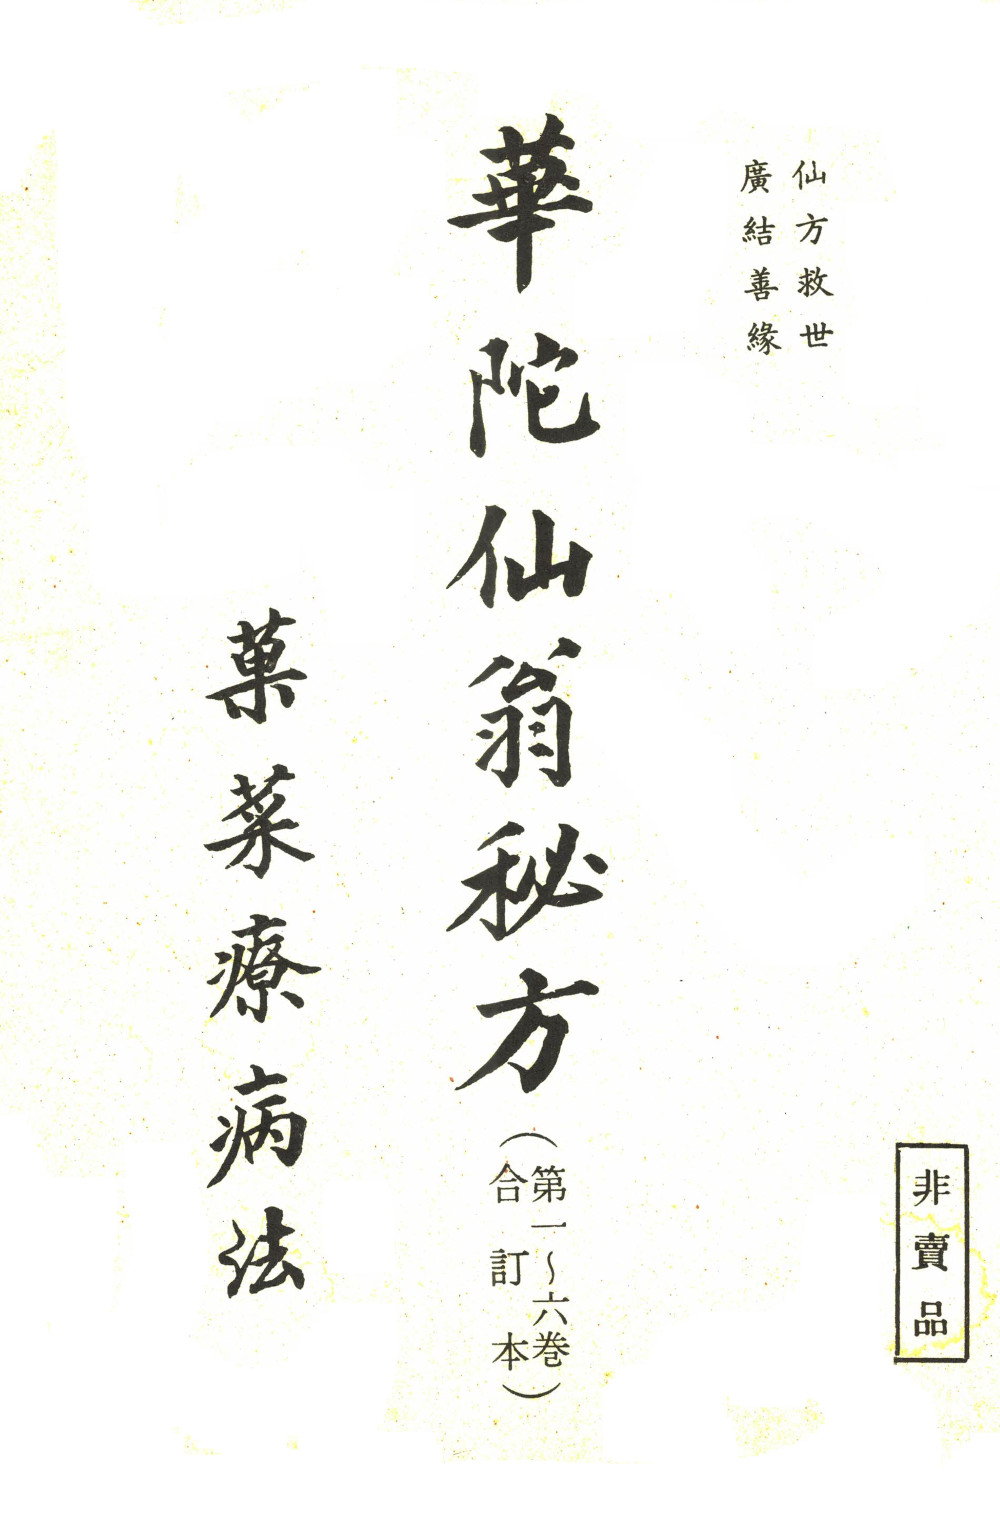 仙方救世
廣結善緣
非賣品
華陀仙翁秘方
（第一～六巻
合訂本）
菓菜療病法